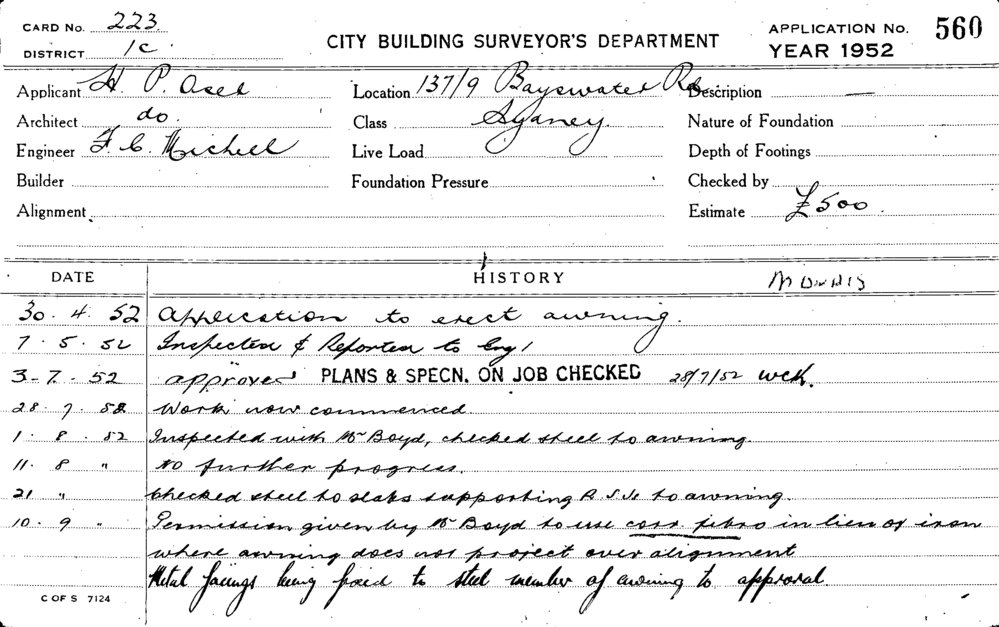 CARD No. 223
DISTRICT 1c
CITY BUILDING SURVEYOR'S DEPARTMENT
APPLICATION No. 560
YEAR 1952
Applicant H. P. Oser
Location 137/9 Bayswater Rd.
Description —
Architect do.
Class Sydney.
Nature of Foundation
Engineer F. C. Michell
Live Load
Depth of Footings
Builder
Foundation Pressure
Checked by
Alignment
Estimate £500.
DATE HISTORY
30. 4. 52 Application to erect awning.
7. 5. 52 Inspected & Reported to Eng/
3-7. 52 approved PLANS & SPECN. ON JOB CHECKED 28/7/52 WCK.
28. 7. 52 Work now commenced
1. 8. 52 Inspected with Mr Boyd, checked steel to awning.
11. 8 " No further progress.
21 " Checked steel to slabs supporting R.S.Js to awning.
10. 9 " Permission given by Mr Boyd to use corr fibro in lieu of iron
where awning does not project over alignment
Metal facings being fixed to steel member of awning to approval.
C OF S 7124